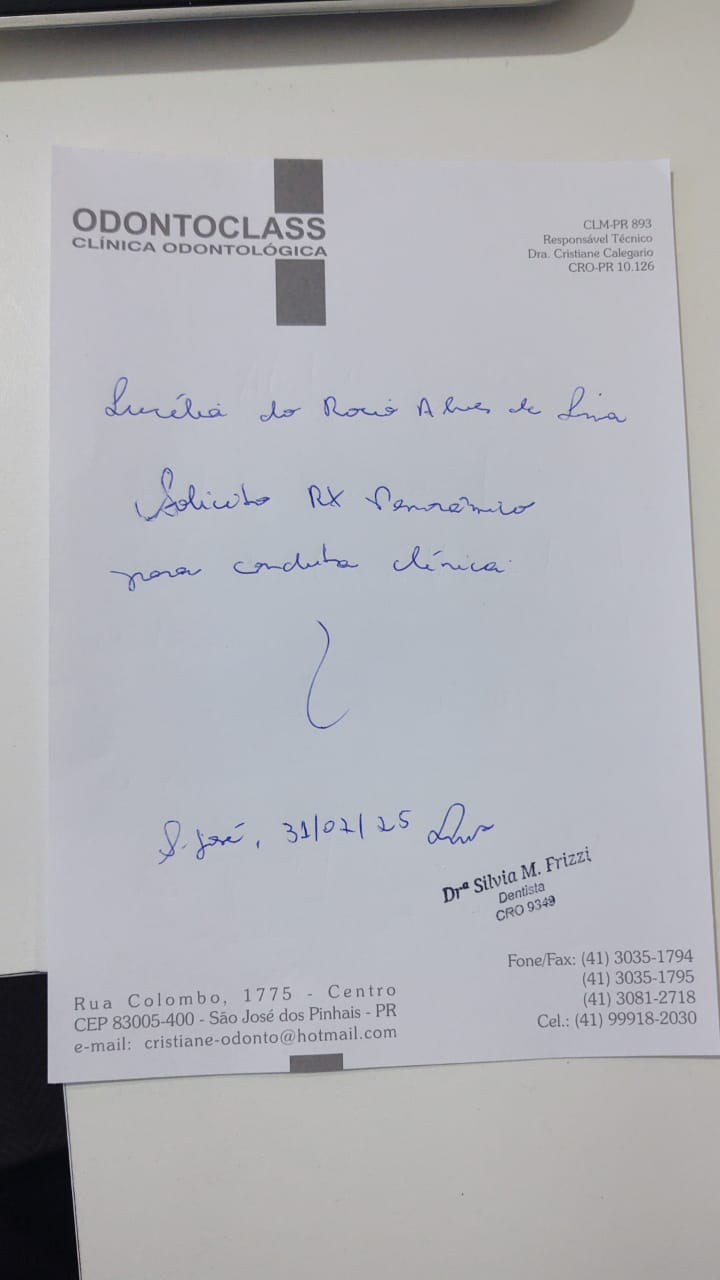 ODONTOCLASS
CLÍNICA ODONTOLÓGICA
CLM-PR 893
Responsável Técnico
Dra. Cristiane Calegario
CRO-PR 10.126
Lucélia do Rocio Alves de Lima
Solicito RX Panorâmico
para conduta clínica.
S. José, 31/07/25
Drª Silvia M. Frizzi
Dentista
CRO 9349
Rua Colombo, 1775 - Centro
CEP 83005-400 - São José dos Pinhais - PR
e-mail: cristiane-odonto@hotmail.com
Fone/Fax: (41) 3035-1794
(41) 3035-1795
(41) 3081-2718
Cel.: (41) 99918-2030